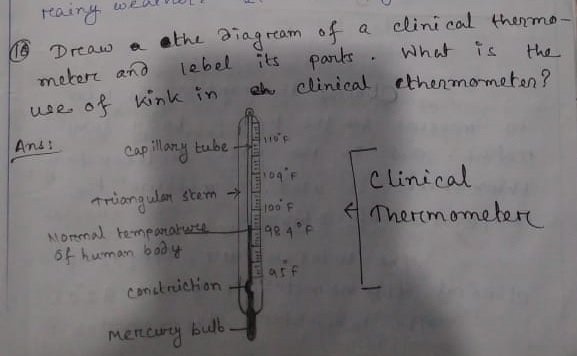 reainy weather
(16) Dreaw a the diagream of a clinical thermo-
metere and label its parts. What is the
use of kink in eh clinical ethermometer?
Ans:
capillary tube
110°F
104°F
triangular stem
100°F
Normal temparature
of human body
98.4°F
95°F
conctriction
mercury bulb
Clinical
Thermometere